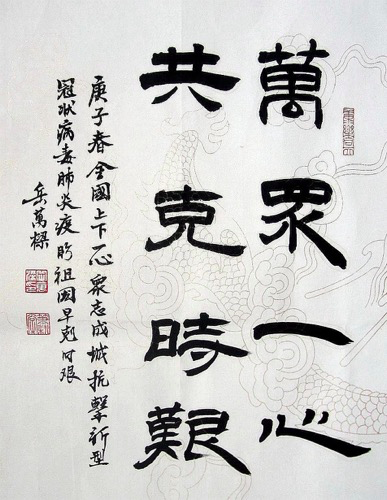 萬眾一心
共克時艱
庚子春全國上下一心眾志成城抗擊新型
冠狀病毒肺炎疫盼祖國早剋時艱
岳萬樑